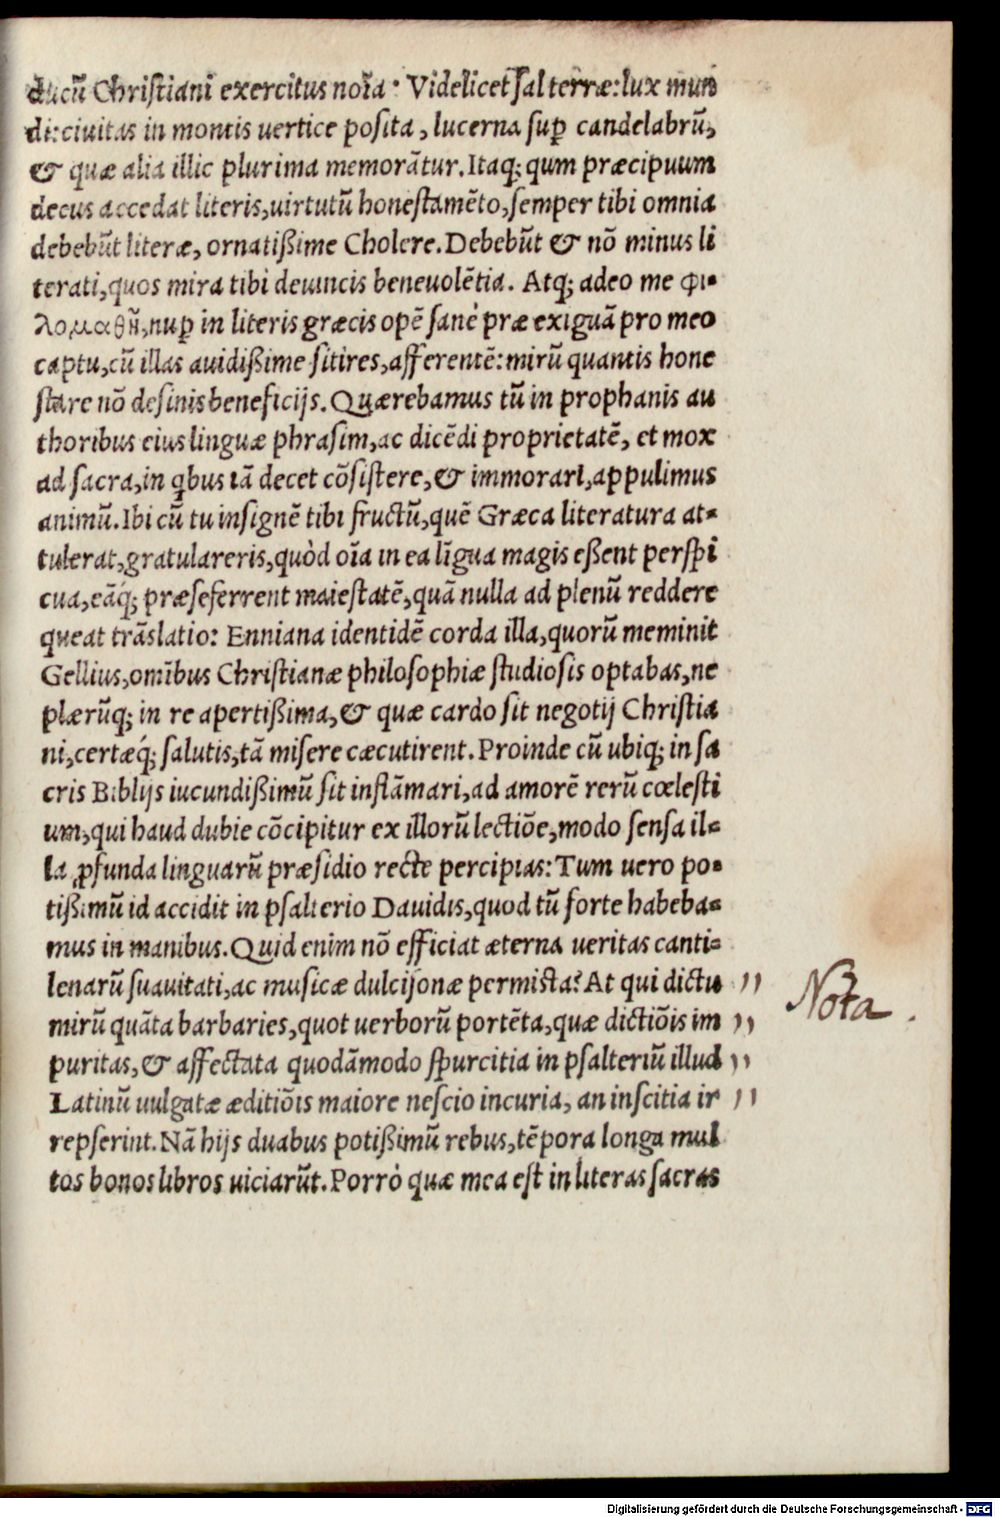 ducū Christiani exercitus noīa· Videlicet sal terræ: lux mun
di: ciuitas in montis uertice posita, lucerna suꝑ candelabrū,
& quæ alia illic plurima memorātur. Itaq; qum præcipuum
decus accedat literis, uirtutū honestamēto, semper tibi omnia
debebūt literæ, ornatißime Cholere. Debebūt & nō minus li
terati, quos mira tibi deuincis beneuolētia. Atq; adeo me φι-
λομαθῆ, nuꝑ in literis græcis opē sanè præ exiguā pro meo
captu, cū illas auidißime sitires, afferentē: mirū quantis hone
stare nō desinis beneficijs. Quærebamus tū in prophanis au
thoribus eius linguæ phrasim, ac dicēdi proprietatē, et mox
ad sacra, in ꝗbus iā decet cōsistere, & immorari, appulimus
animū. Ibi cū tu insignē tibi fructū, quē Græca literatura at-
tulerat, gratulareris, quòd oīa in ea līgua magis eßent perspi
cua, eāq́; præseferrent maiestatē, quā nulla ad plenū reddere
queat trāslatio: Enniana identidē corda illa, quorū meminit
Gellius, omībus Christianæ philosophiæ studiosis optabas, ne
plærūq; in re apertißima, & quæ cardo sit negotij Christia
ni, certæq́; salutis, tā misere cæcutirent. Proinde cū ubiq; in sa
cris Biblijs iucundißimū sit inflāmari, ad amorē rerū cœlesti
um, qui haud dubie cōcipitur ex illorū lectiōe, modo sensa il-
la ꝓfunda linguarū præsidio recte percipias: Tum uero po-
tißimū id accidit in psalterio Dauidis, quod tū forte habeba-
mus in manibus. Quid enim nō efficiat æterna ueritas canti-
lenarū suauitati, ac musicæ dulcijonæ permista? At qui dictu ,,
mirū quāta barbaries, quot uerborū portēta, quæ dictiōis im ,,
puritas, & affectata quodāmodo spurcitia in psalteriū illud ,,
Latinū uulgatæ æditiōis maiore nescio incuria, an inscitia ir ,,
repserint. Nā hijs duabus potißimū rebus, tēpora longa mul
tos bonos libros uiciarūt. Porrò quæ mea est in literas sacras
Nota .
Digitalisierung gefördert durch die Deutsche Forschungsgemeinschaft - DFG